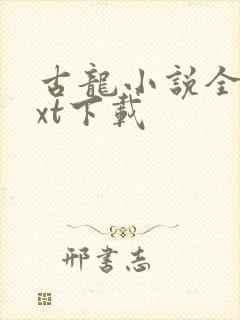 古龍小說全
xt下載
邢書志